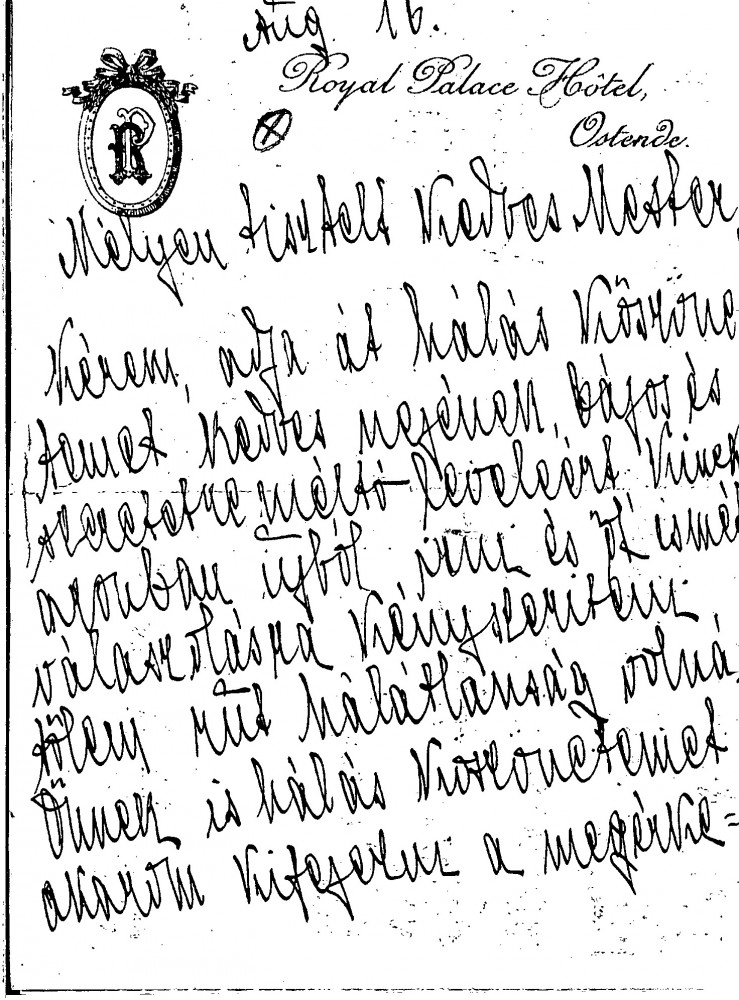 Aug 16.
Royal Palace Hôtel,
Ostende.
R
Mélyen tisztelt kedves Mester,
Kérem, adja át hálás köszöne
temet kedves nejének, bájos és
szeretetre méltó leveleért
azonban újból irni és őt ismé
válaszolásra kényszeritem
tőlem rút hálátlanság volna.
Önnek is hálás köszönetemet
akarom kifejezni a megérke=